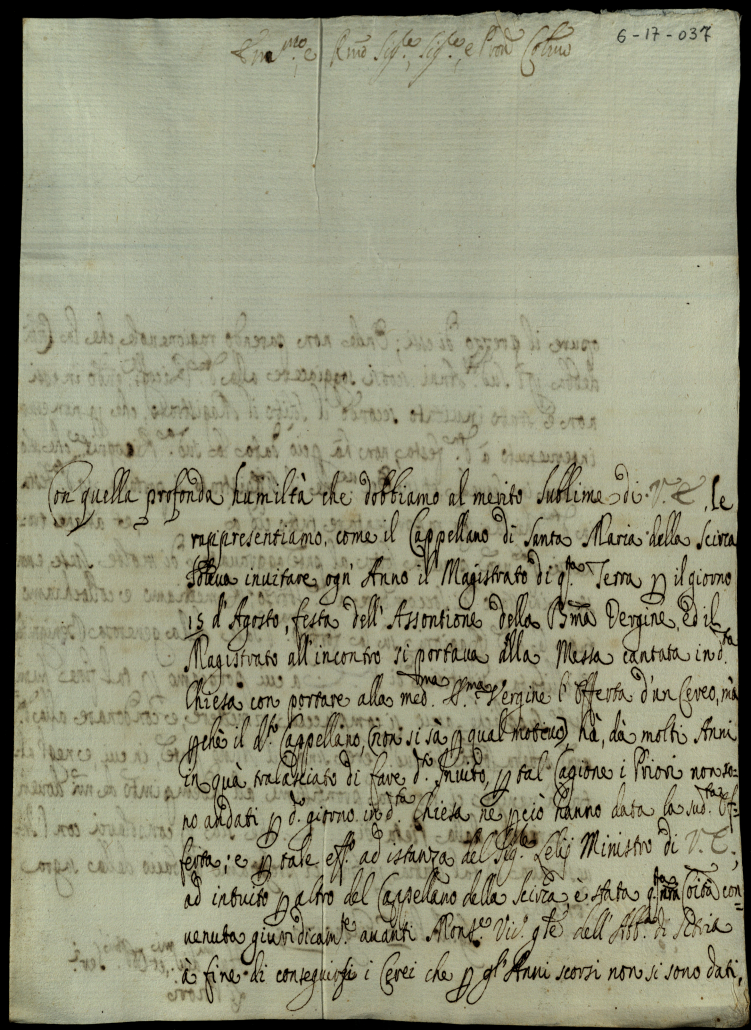 6-17-037
Em.mo, e Rmo Sig.e, Sig.e, e Pron Colmo
Con quella profonda humiltà che dobbiamo al merito sublime di V. E., le
rappresentiamo, come il Cappellano di Santa Maria della Scirca
soleva invitare ogn' Anno il Magistrato di q.ta Terra p il giorno
15 d'Agosto, festa dell' Assontione della Bma Vergine, Ed il
Magistrato all'incontro si portava alla Messa cantata in d.ta
Chiesa con portare alla med.ma S.ma Vergine l'offerta d'un Cereo, mà
pchè il d.to Cappellano, (non si sà p qual motivo) hà, dà molti Anni
in quà tralasciato di fare d.to Invito, p tal Cagione i Priori non so-
no andati p d.o giorno in d.ta Chiesa ne pciò hanno data la sud.ta Of-
ferta; e p tale eff.o ad istanza del Sig.e Lelij Ministro di V. E.,
ad intuito p altro del Cappellano della Scirca, è stata q.ta nra Coità con-
venuta giuridicam.te avanti Mons.e Vic.o g.le dell' Abb.a di Sitria
à fine di conseguirsi i Cerei che p gl'Anni scorsi non si sono dati,